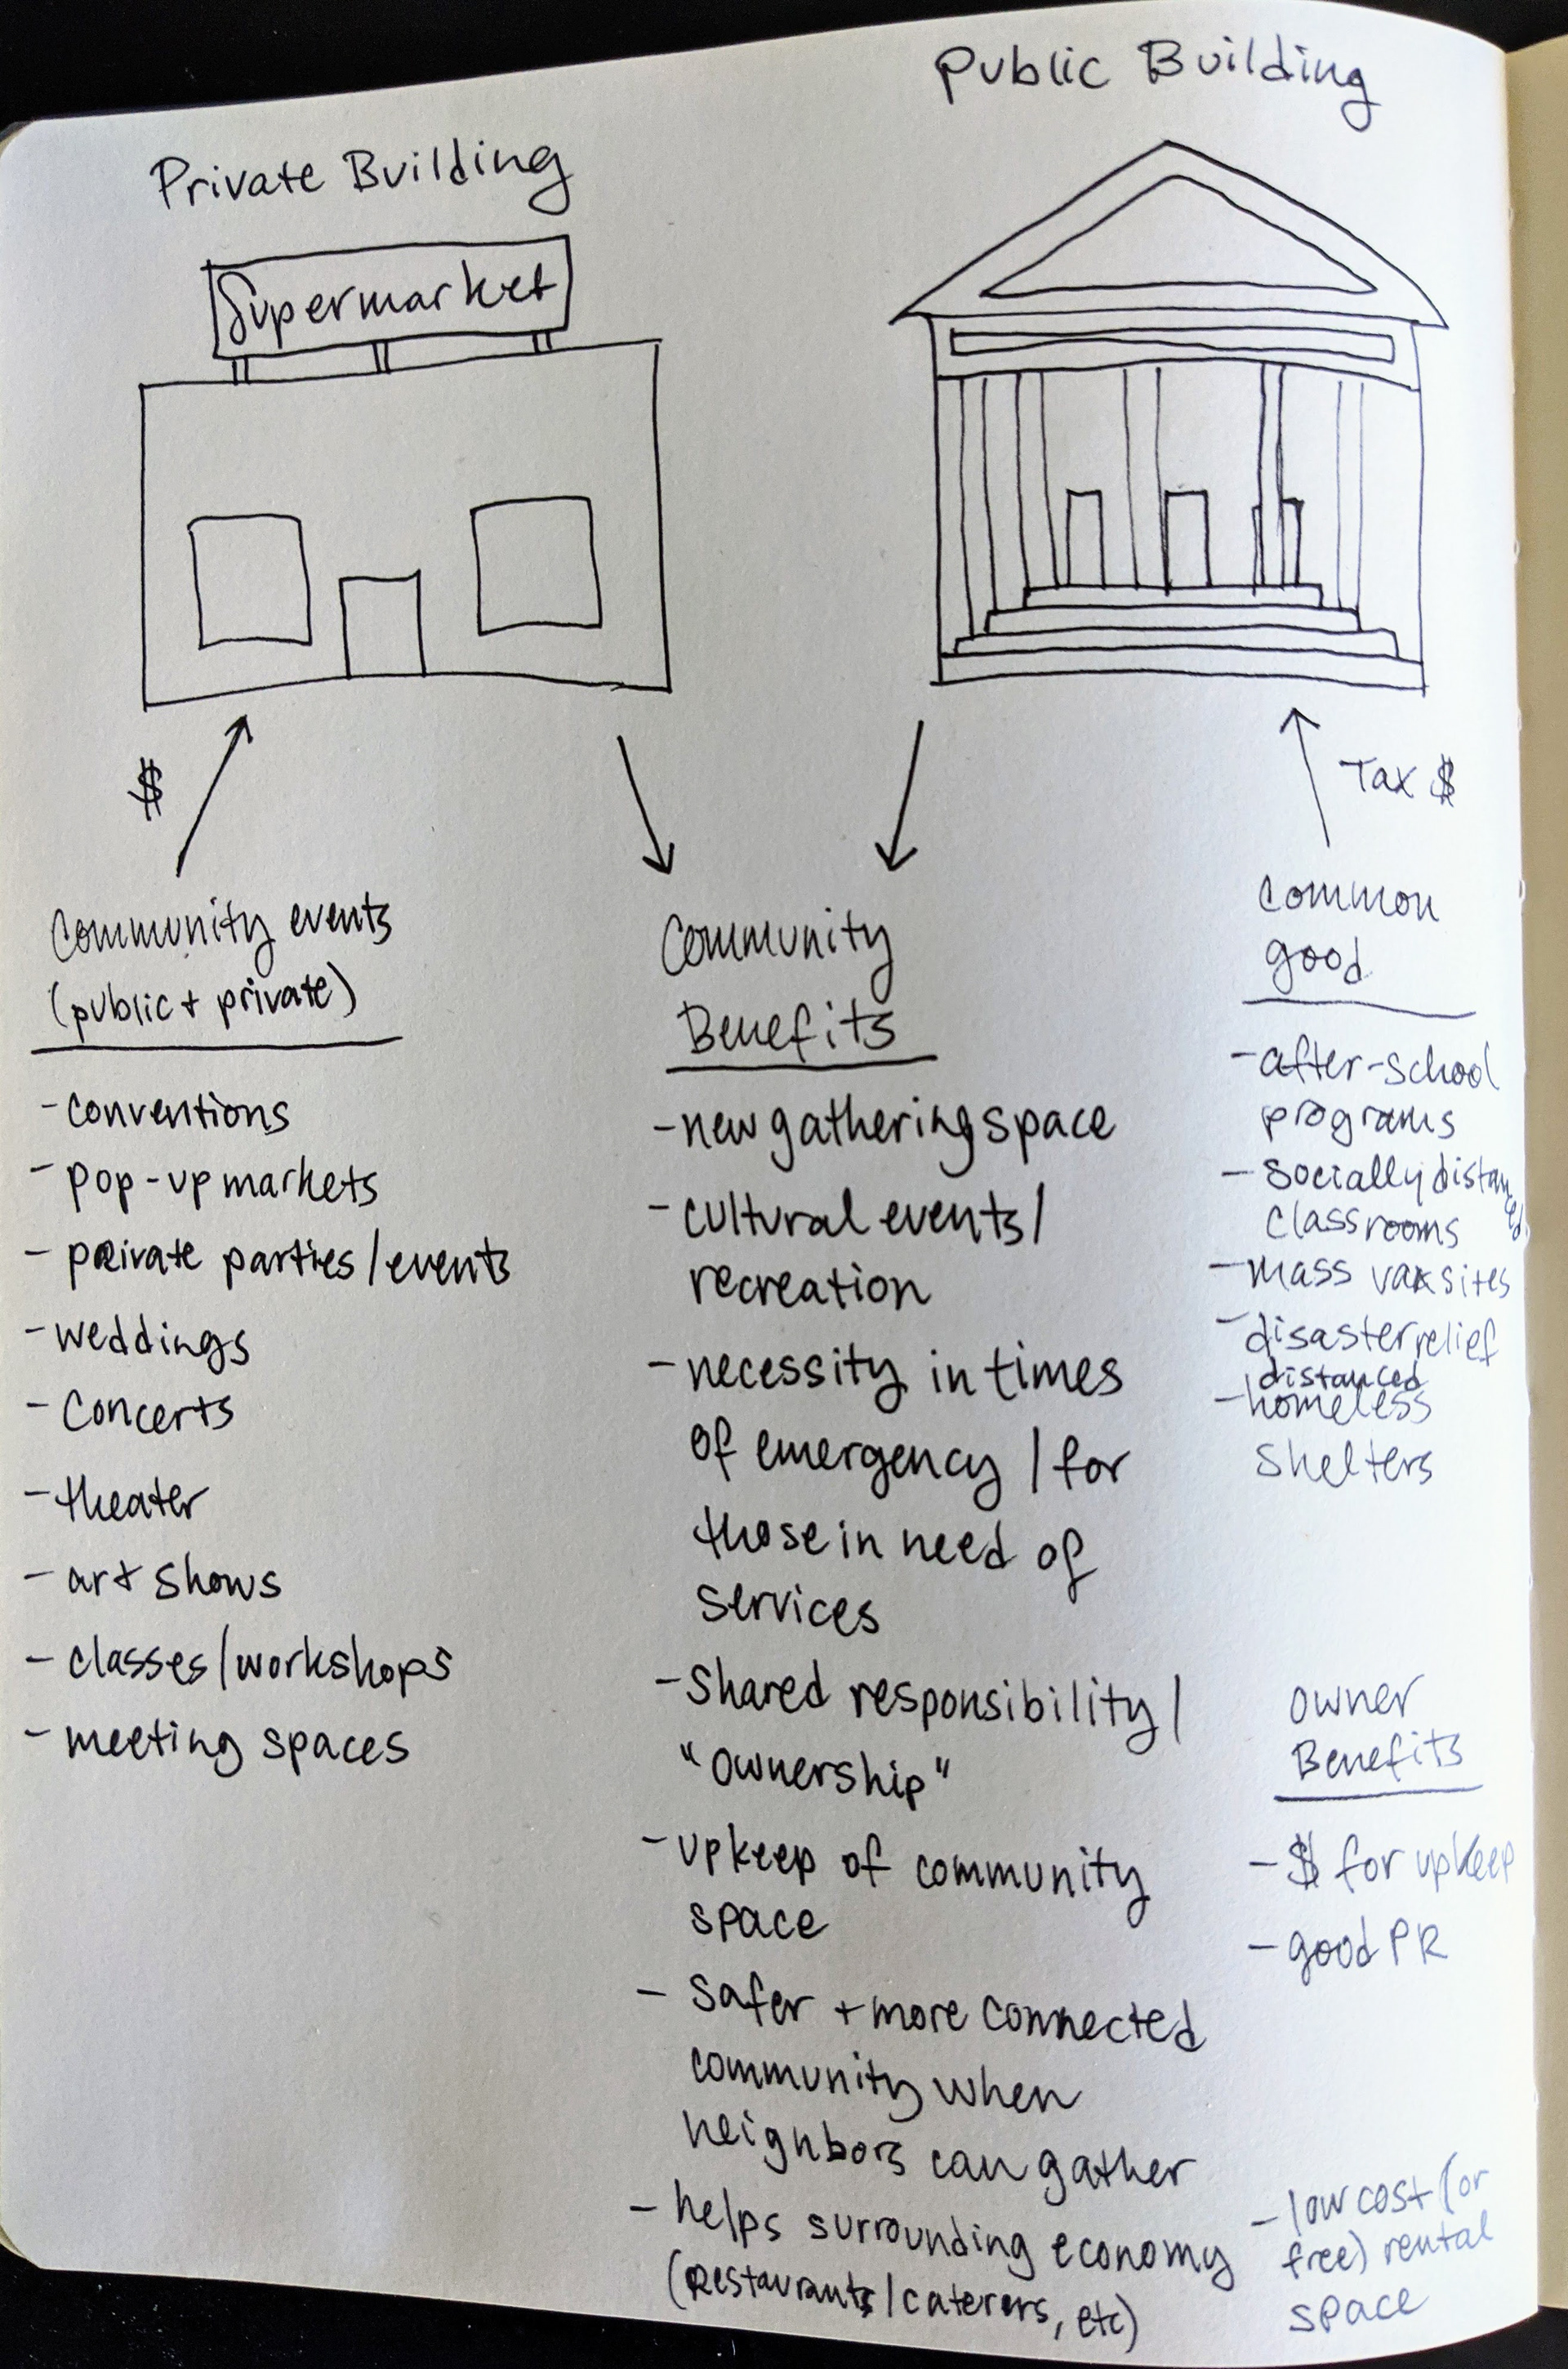 Public Building
Private Building
Supermarket
$
Tax $
Community events
(public + private)
- conventions
- pop-up markets
- private parties/events
- weddings
- Concerts
- theater
- art shows
- classes/workshops
- meeting spaces
Community
Benefits
- new gathering space
- cultural events/
recreation
- necessity in times
of emergency / for
those in need of
services
- Shared responsibility/
"ownership"
- upkeep of community
space
- Safer + more connected
community when
neighbors can gather
- helps surrounding economy
(restaurants/caterers, etc)
common
good
- after-school
programs
- socially distanced
classrooms
- mass vax sites
- disaster relief
distanced
- homeless
shelters
owner
Benefits
- $ for upkeep
- good PR
- low cost (or
free) rental
space